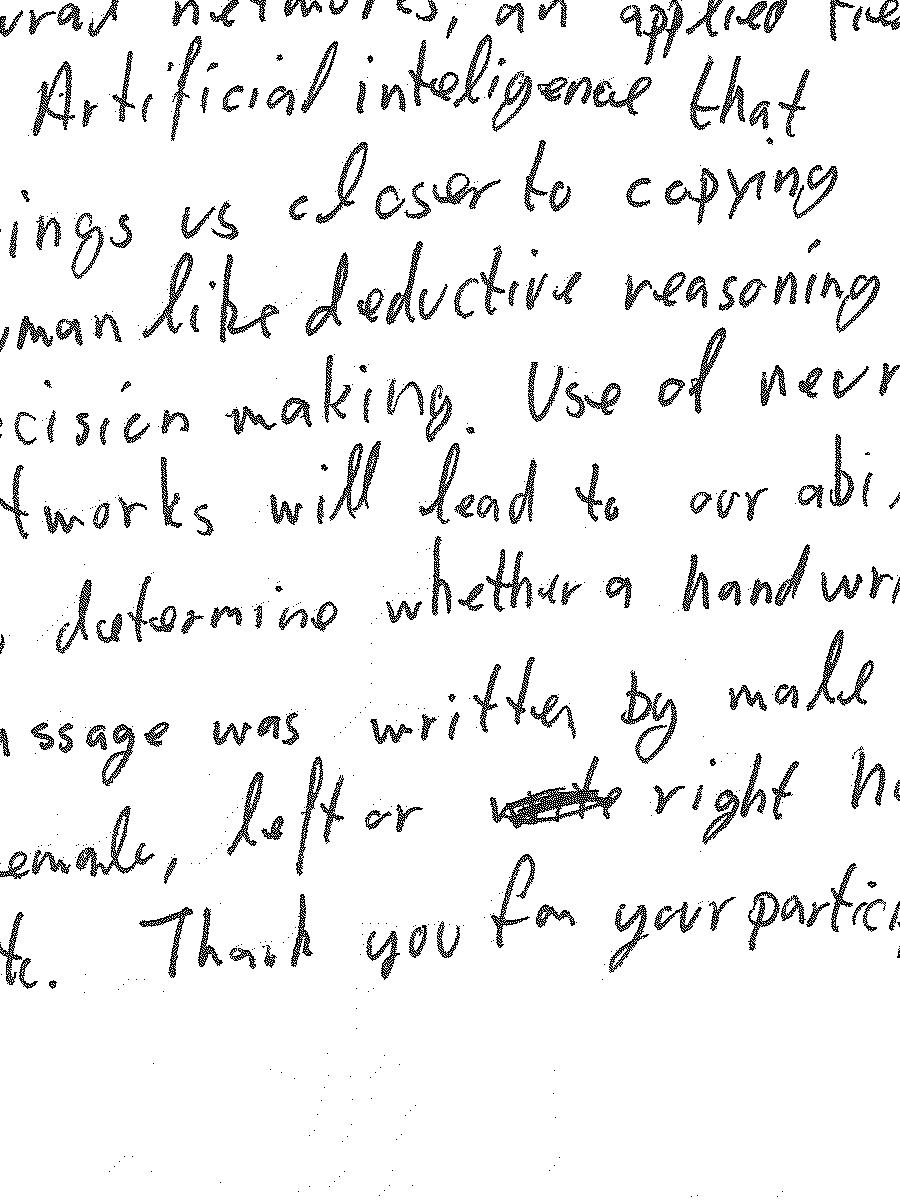 ural networks, an applied fie
Artificial inteligence that
ings us closer to copying
uman like deductive reasoning
ecision making. Use of neur
tworks will lead to our abi
determine whether a handwri
assage was written by male
emale, left or right ha
etc. Thank you for your partici